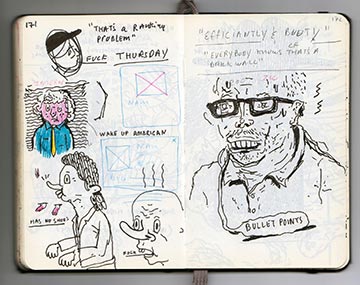 171
"THATS A RANKING
PROBLEM"
FUCK THURSDAY
WAKE UP AMERICAN
HAS NO SHOES
FUCK
172
"EFFICIANTLY & BUDTY"
"EVERYBODY KNOWS THATS A
BRICK WALL"
BULLET POINTS